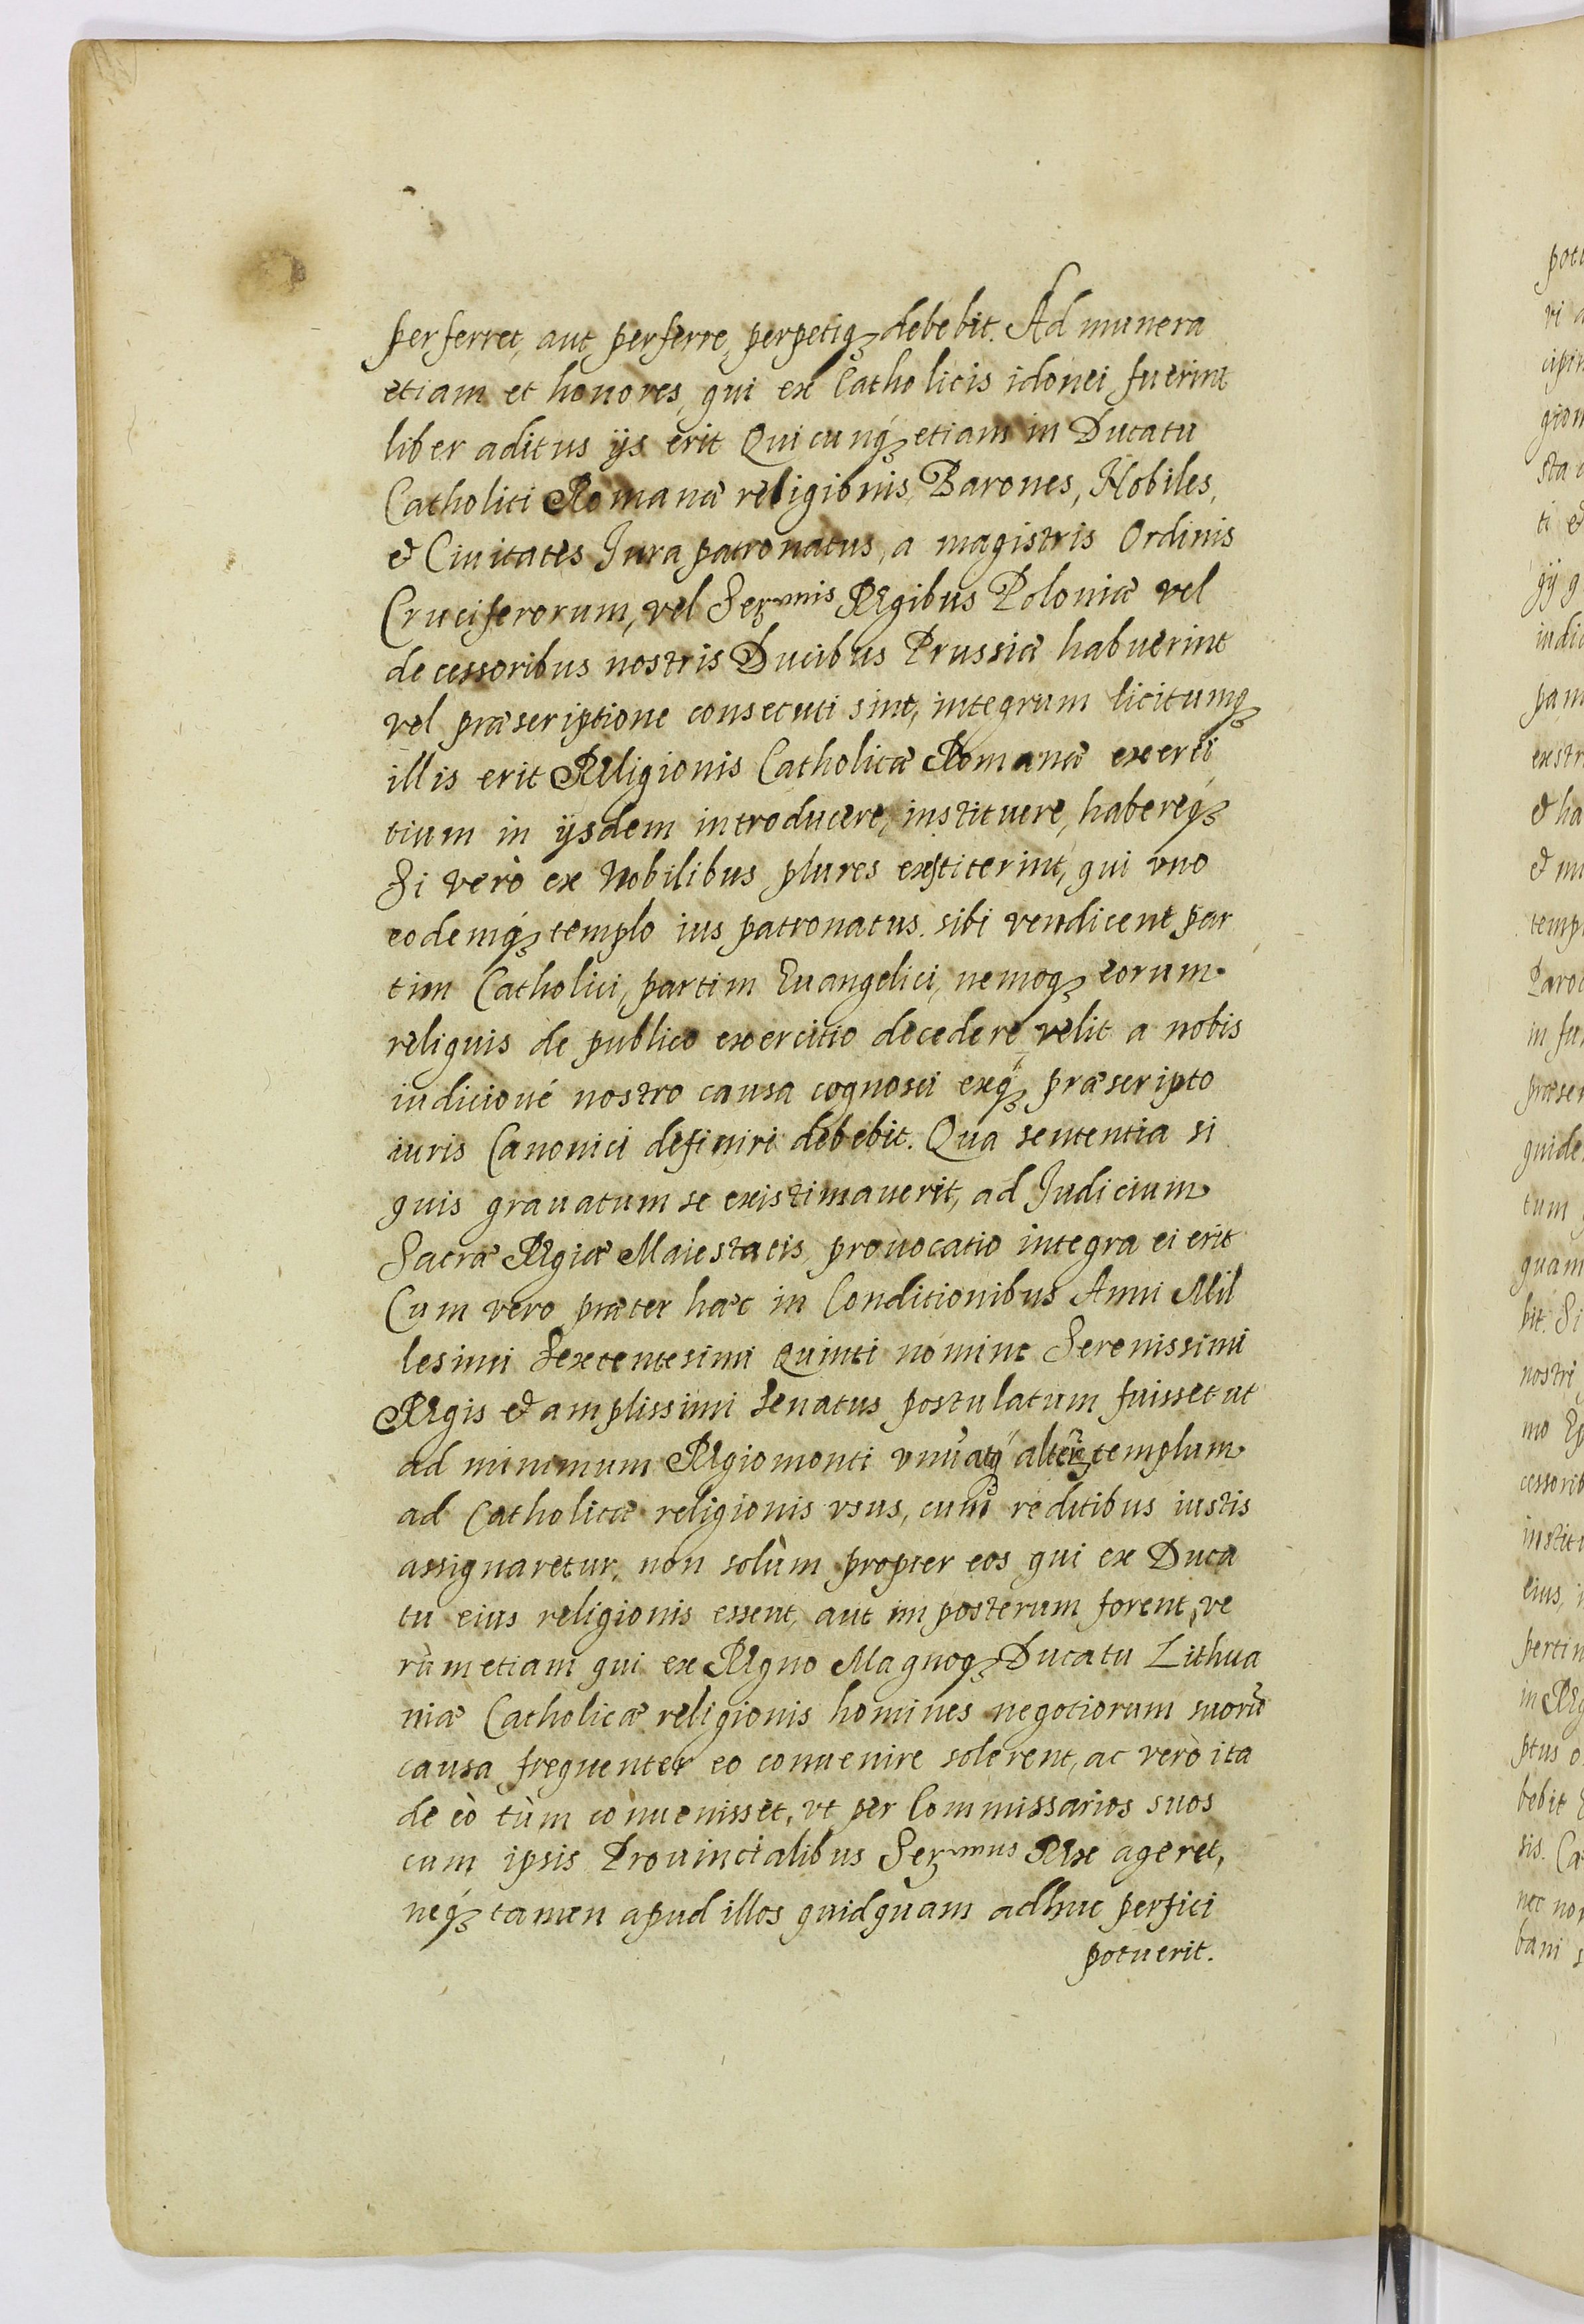 perferret, aut perferre, perpetiq₃ debebit. Ad munera
etiam et honores, qui ex Catholicis idonei fuerint
liber aditus ijs erit Quicunq₃ etiam in Ducatu
Catholici Romanæ religionis, Barones, Nobiles,
& Ciuitates Jura patronatus, a magistris Ordinis
Cruciferorum, vel Serᵐⁱˢ Regibus Poloniæ vel
decessoribus nostris Ducibus Prussiæ habuerint
vel præscriptione consecuti sint, integrum licitumq₃
illis erit Religionis Catholicæ Romanæ exerci
tium in ijsdem introducere, instituere, habereq₃
Si verò ex Nobilibus plures exstiterint, qui vno
eodemq₃ templo ius patronatus sibi vendicent par
tim Catholici, partim Euangelici, nemoq₃ eorum
reliquis de publico exercitio decedere velit a nobis
iudicioué nostro causa cognosci exq₃ præscripto
iuris Canonici definiri debebit. Qua sententia si
quis grauatum se existimauerit, ad Judicium
Sacræ Regiæ Maiestatis prouocatio integra ei erit
Cum vero præter hæc in Conditionibus Anni Mil
lesimi Sexcentesimi Quinti nomine Serenissimi
Regis & amplissimi Senatus postulatum fuisset ut
ad minimum Regiomonti vnũ atq₃ alterũ templum
ad Catholicæ religionis vsus, cum reditibus iustis
assignaretur, non solùm propter eos qui ex Duca
tu eius religionis essent, aut imposterum forent, ve
rùm etiam qui ex Regno Magnoq₃ Ducatu Lithua
niæ Catholicæ religionis homines negotiorum suorũ
causa frequenter eo conuenire solerent, ac verò ita
de eò tùm conuenisset, vt per Commissarios suos
cum ipsis Prouincialibus Serᵐᵘˢ Rex ageret,
neq₃ tamen apud illos quidquam adhuc perfici
potuerit.